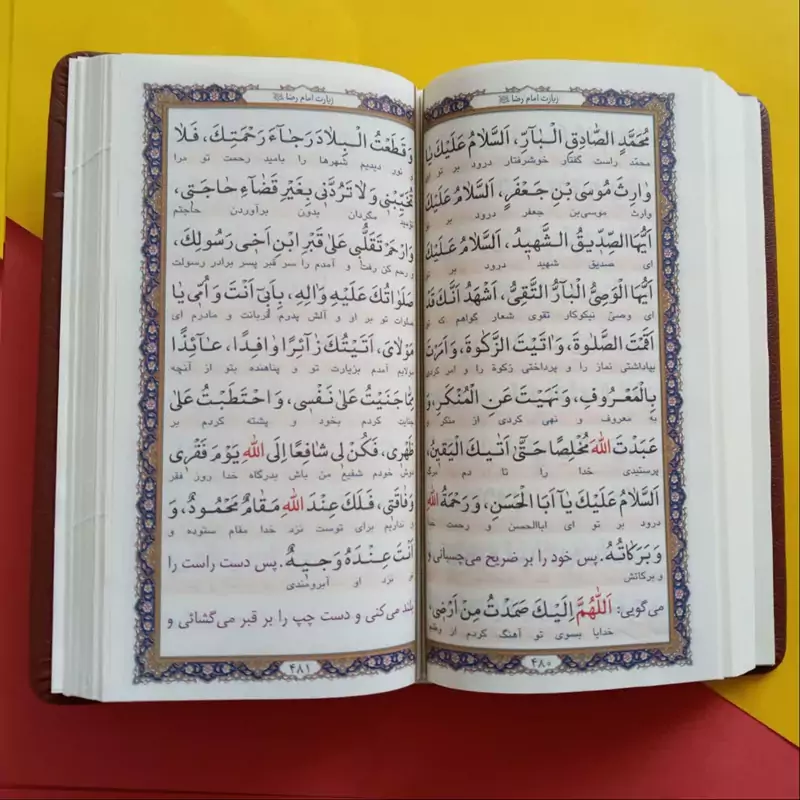 زیارت امام رضا
مُحَمَّدٍ الصّٰادِقِ الْبٰآرِّ، اَلسَّلاٰمُ عَلَیْكَ یٰا
محمّد راست گفتار خوشرفتار درود بر تو ای
وٰارِثَ مُوسَی بْنِ جَعْفَرٍ، اَلسَّلاٰمُ عَلَیْكَ
وارث موسی‌بن جعفر درود بر تو
اَیُّهَا الصِّدّیقُ الشَّهیدُ، اَلسَّلاٰمُ عَلَیْكَ
ای صدیق شهید درود بر تو
اَیُّهَا الْوَصِیُّ الْبٰآرُّ التَّقِیُّ، اَشْهَدُ اَنَّكَ قَدْ
ای وصیّ نیکوکار تقوی شعار گواهم که تو
اَقَمْتَ الصَّلوٰةَ، وَ اٰتَیْتَ الزَّکوٰةَ، وَ اَمَرْتَ
بپاداشتی نماز را و پرداختی زکوة را و امر کردی
بِالْمَعْرُوفِ، وَ نَهَیْتَ عَنِ الْمُنْکَرِ، وَ
به معروف و نهی کردی از منکر و
عَبَدْتَ اللهَ مُخْلِصًا حَتّٰی اَتٰیكَ الْیَقینُ،
پرستیدی خدا را تا دم مرگ
اَلسَّلاٰمُ عَلَیْكَ یٰآ اَبَا الْحَسَنِ، وَ رَحْمَةُ اللهِ
درود بر تو ای اباالحسن و رحمت خدا
وَ بَرَکٰاتُهُ. پس خود را بر ضریح می‌چسبانی و
و برکاتش
می‌گویی: اَللّٰهُمَّ اِلَیْكَ صَمَدْتُ مِنْ اَرْضی،
خدایا بسوی تو آهنگ کردم از وطنم
۴۸۰
زیارت امام رضا
وَ قَطَعْتُ الْبِلاٰدَ رَجٰآءَ رَحْمَتِكَ، فَلاٰ
در نور دیدیم شهرها را بامید رحمت تو مرا
تُخَیِّبْنی وَ لاٰ تَرُدَّنی بِغَیْرِ قَضٰآءِ حٰاجَتی،
نومید مگردان بدون برآوردن حاجتم
وَ ارْحَمْ تَقَلُّبی عَلیٰ قَبْرِ ابْنِ اَخی رَسُولِكَ،
و رحم کن رفتنا و آمدم را سر قبر پسر برادر رسولت
صَلَوٰاتُكَ عَلَیْهِ وَ اٰلِهِ، بِاَبی اَنْتَ وَ اُمّی یٰا
صلوات تو بر او و آلش پدرم قربانت و مادرم ای
مَوْلاٰیَ، اَتَیْتُكَ زٰآئِرًا وٰافِدًا، عٰآئِذًا
مولایم آمدم بزیارت تو و پناهنده بتو از آنچه
مِمّٰا جَنَیْتُ عَلیٰ نَفْسی، وَ احْتَطَبْتُ عَلیٰ
جنایت کردم بخود و پشته کردم بر
ظَهْری، فَکُنْ لی شٰافِعًا اِلَی اللهِ یَوْمَ فَقْری
دوش خودم شفیع من باش بدرگاه خدا روز فقر
وَ فٰاقَتی، فَلَكَ عِنْدَ اللهِ مَقٰامٌ مَحْمُودٌ، وَ
و نداریم برای توست نزد خدا مقام ستوده و
اَنْتَ عِنْدَهُ وَجیهٌ. پس دست راست را
تو نزد او آبرومندی
بلند می‌کنی و دست چپ را بر قبر می‌گشائی و
۴۸۱